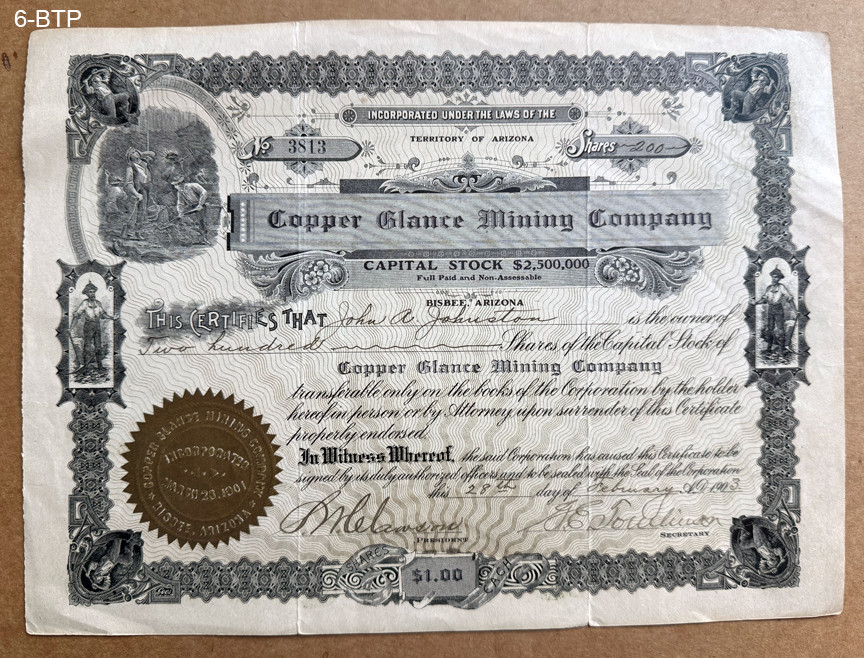 6-BTP
INCORPORATED UNDER THE LAWS OF THE
TERRITORY OF ARIZONA
No 3813
Shares 200
Copper Glance Mining Company
CAPITAL STOCK $2,500,000
Full Paid and Non-Assessable
BISBEE, ARIZONA
THIS CERTIFIES THAT John A. Johnston is the owner of
Two hundred Shares of the Capital Stock of
Copper Glance Mining Company
transferable only on the books of the Corporation by the holder
hereof in person or by Attorney upon surrender of this Certificate
properly endorsed.
In Witness Whereof, the said Corporation has caused this Certificate to be
signed by its duly authorized officers and to be sealed with the Seal of the Corporation
this 28th day of February A.D. 1903
PRESIDENT
SECRETARY
COPPER GLANCE MINING COMPANY
INCORPORATED
MARCH 23, 1901
BISBEE, ARIZONA
SHARES $1.00 EACH